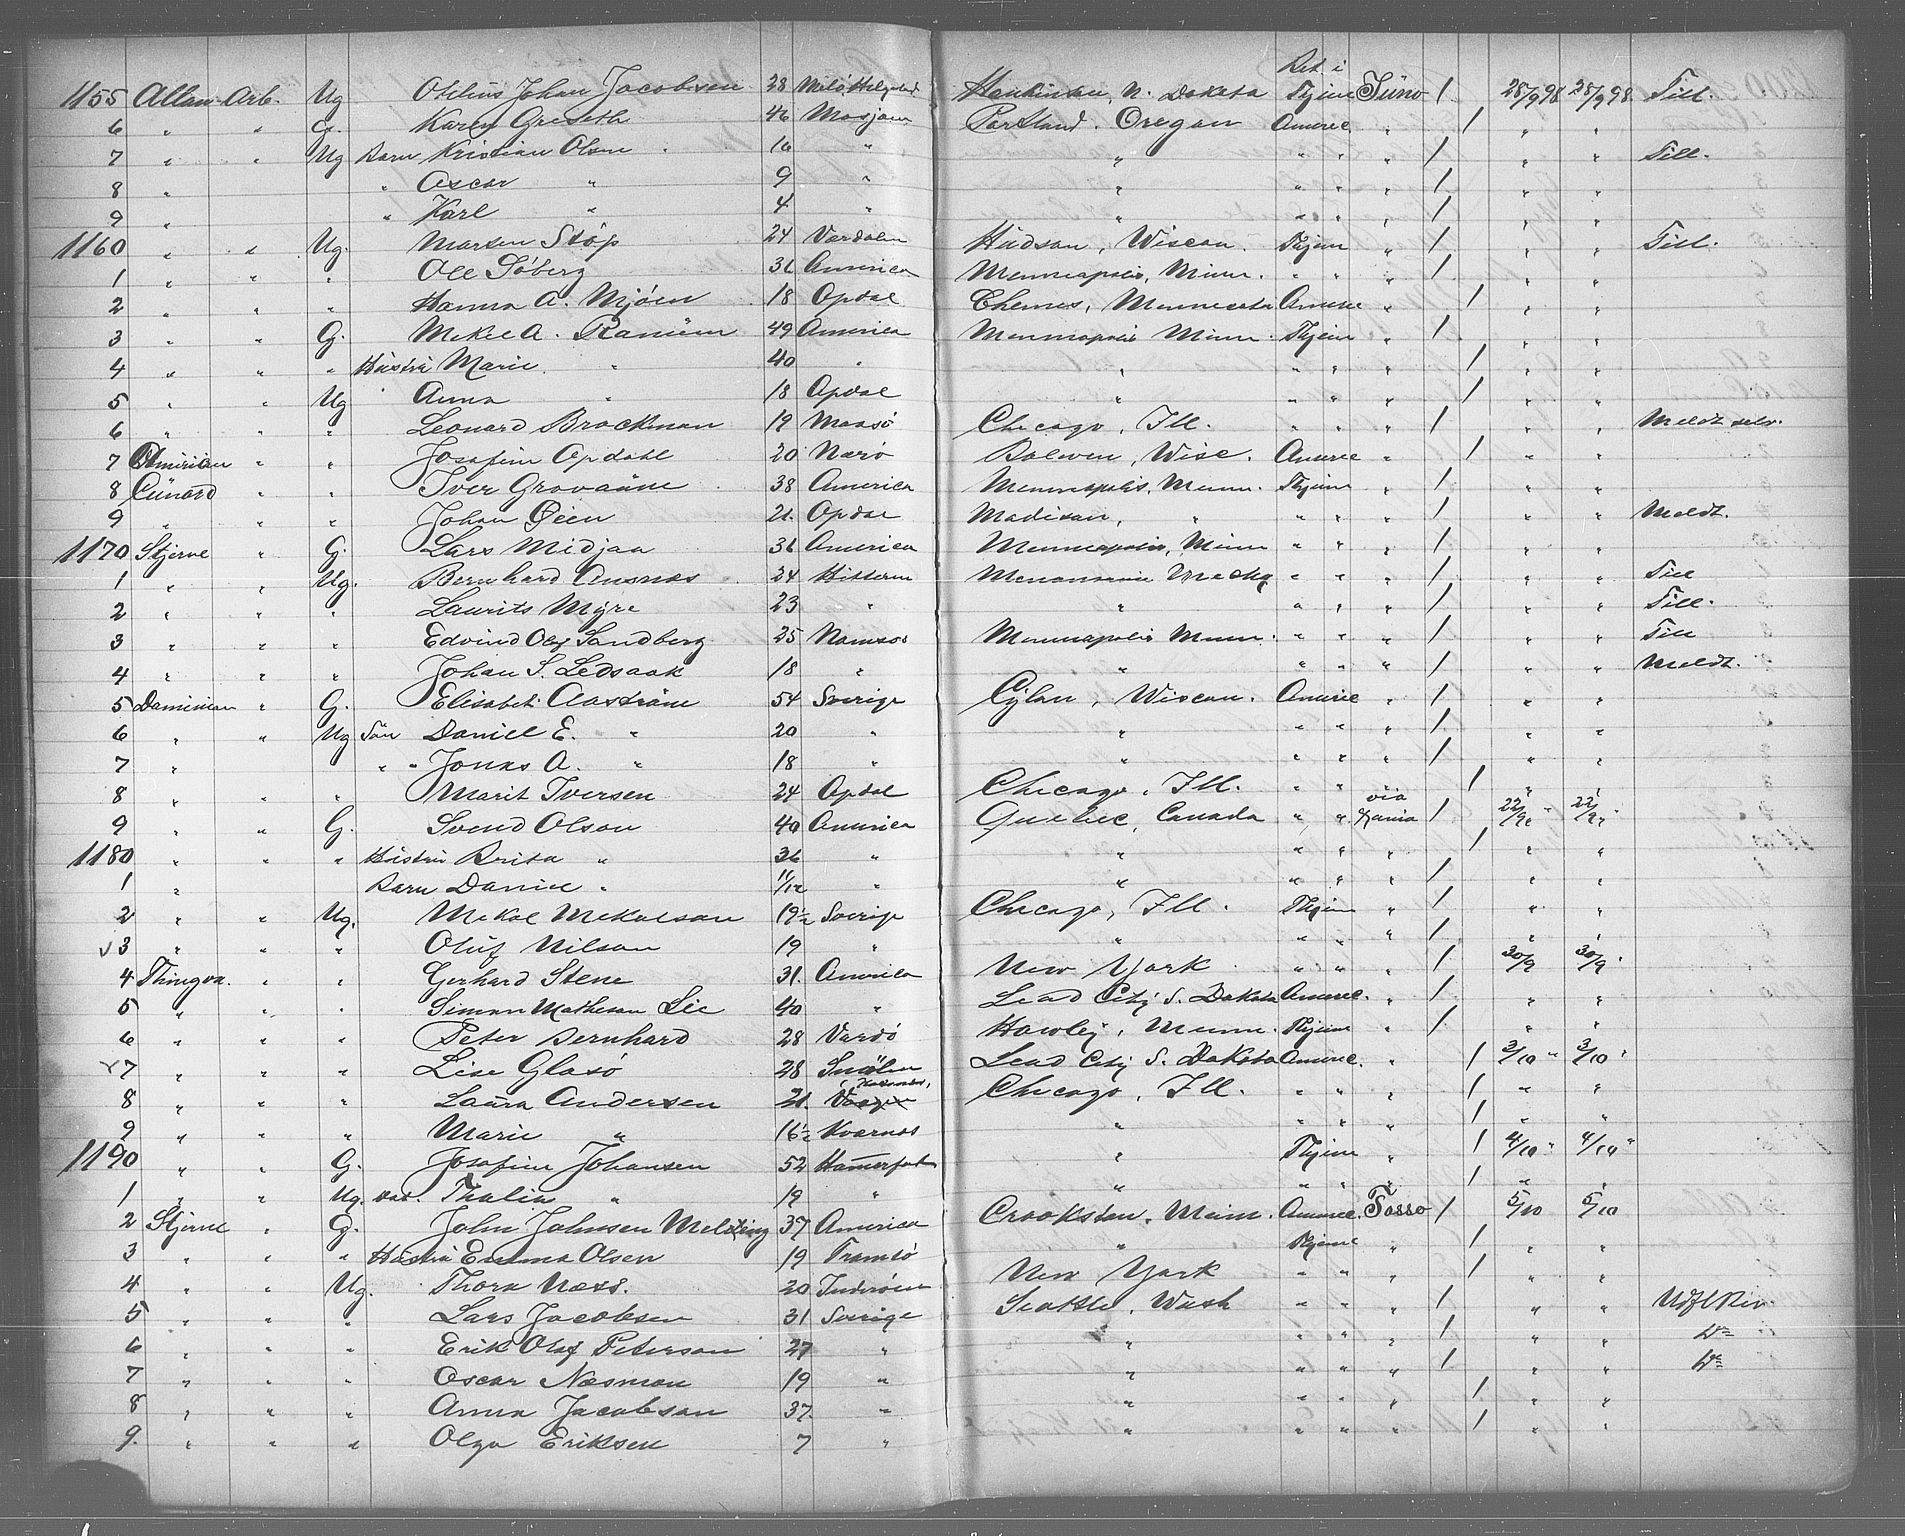 Bet. i
1155 Allan Arb. Ug Otilius Johan Jacobsen 28 N. Dakota Thjem Juno / 28/9 98 28/9 98. Till.
6 " " G. Karen 46 Mosjøen Portland. Oregon Americ " / " "
7 " " Ug Barn Kristian Olsen 10 " " " " " / " " Till.
8 " " Oscar " 9 " " " " " / " "
9 " " Karl " 4 " " " " " / " "
1160 " " Ug. Støp 24 Værdalen Hudson, Wiscon. Thjem " / " " Till.
1 " " " Ole Søberg 36 America Minneapolis, Minn. " " " / " "
2 " " " Hanna A. Mjøen 18 Opdal Minnesota Americ " / " "
3 " " G. Mikel A. 49 America Minneapolis Minn. Thjem " / " "
4 " " " Hustru Marie " 40 " " " " " / " "
5 " " Ug " Anna " 18 Opdal " " " " / " "
6 " " " Leonard Brockman 19 Maasø Chicago, Ill. " " " / " " Meldt selv.
7 " " Josefine Opdahl 20 Nærø Wisc. Americ " / " "
8 Cunard " " Iver 38 America Minneapolis, Minn. Thjem " / " "
9 " " " Johan Øien 21. Opdal Madison, " " " " / " " Meldt.
1170 Stjerne " G. Lars Midjaa 36 America Minneapolis, Minn " " " / " "
1 " " Ug. Bernhard Ansnes 24 Hitteren " " " / " " Till
2 " " " Laurits Myre 23 " " " " " / " " Till.
3 " " " Edvind Olaf Sandberg 25 Namsos Minneapolis Minn. " " " / " " Till
4 " " " Johan S. Ledsaak 18 " " " " " / " " Meldt.
5 Dominion " G. Elisabet Aaström 54 Sverige Cylon, Wiscon. Americ " / " "
6 " " Ug Søn Daniel E. " 20 " " " " " / " "
7 " " " Jonas A. " 18 " " " " " / " "
8 " " " Marit Iversen 24 Opdal Chicago, Ill. " " " / " "
9 " " G. Svend Olson 40 America Quebec, Canada " " via Xania / 22/9 " 22/9 "
1180 " " " Hustru Brita " 36 " " " " " / " "
1 " Barn " 11/12 " " " " " / " "
2 " " Ug. Mikal Mikalsson 19½ Sverige Chicago, Ill. Thjem " / " "
✓3 " " " Oluf Nilson 19 " " " " " / " "
4 Thingva. " " Gerhard Stene 31. America New York " " " / 30/9 " 30/9 "
5 " " " Simon Mathesen Lie 40 " Lead City S. Dakota Americ. " / " "
6 " " " Peter Bernhard 28 Vardø Hawley, Minn. Thjem " / " "
✓7 " " " Lise Glasø 28 Smølen Lead City S. Dakota Americ. " / 3/10 " 3/10 "
8 " " " Laura Andersen 21. Chicago, Ill. " " " / " "
9 " " " Marie " 16½ Kvernes " " " " / " "
1190 " " G. Josefine Johansen 52 Hamerfest " Thjem " / 4/10 " 4/10 "
1 " " Ug. Dat. Thalia " 19 " " " " " / " "
2 Stjerne " G. John Johnsen 37 America Crookston. Minn. Americ. Tasso / 5/10 5/10
3 " " " Hustru Emma Olsen 19 Tromsø " Thjem " / " "
4 " " Ug. Thora Næss. 20 Inderøen New York " " " / " "
5 " " " Lars Jacobsen 31 Sverige Seattle, Wash " " " / " "
6 " " " Erik Olof Peterson 27 " " " " " / " " Do
7 " " " Oscar Næsman 19 " " " " " / " " Do
8 " " " Anna Jacobson 37. " " " " " / " "
9. " " " Olga Eriksen 7 " " " " " / " "